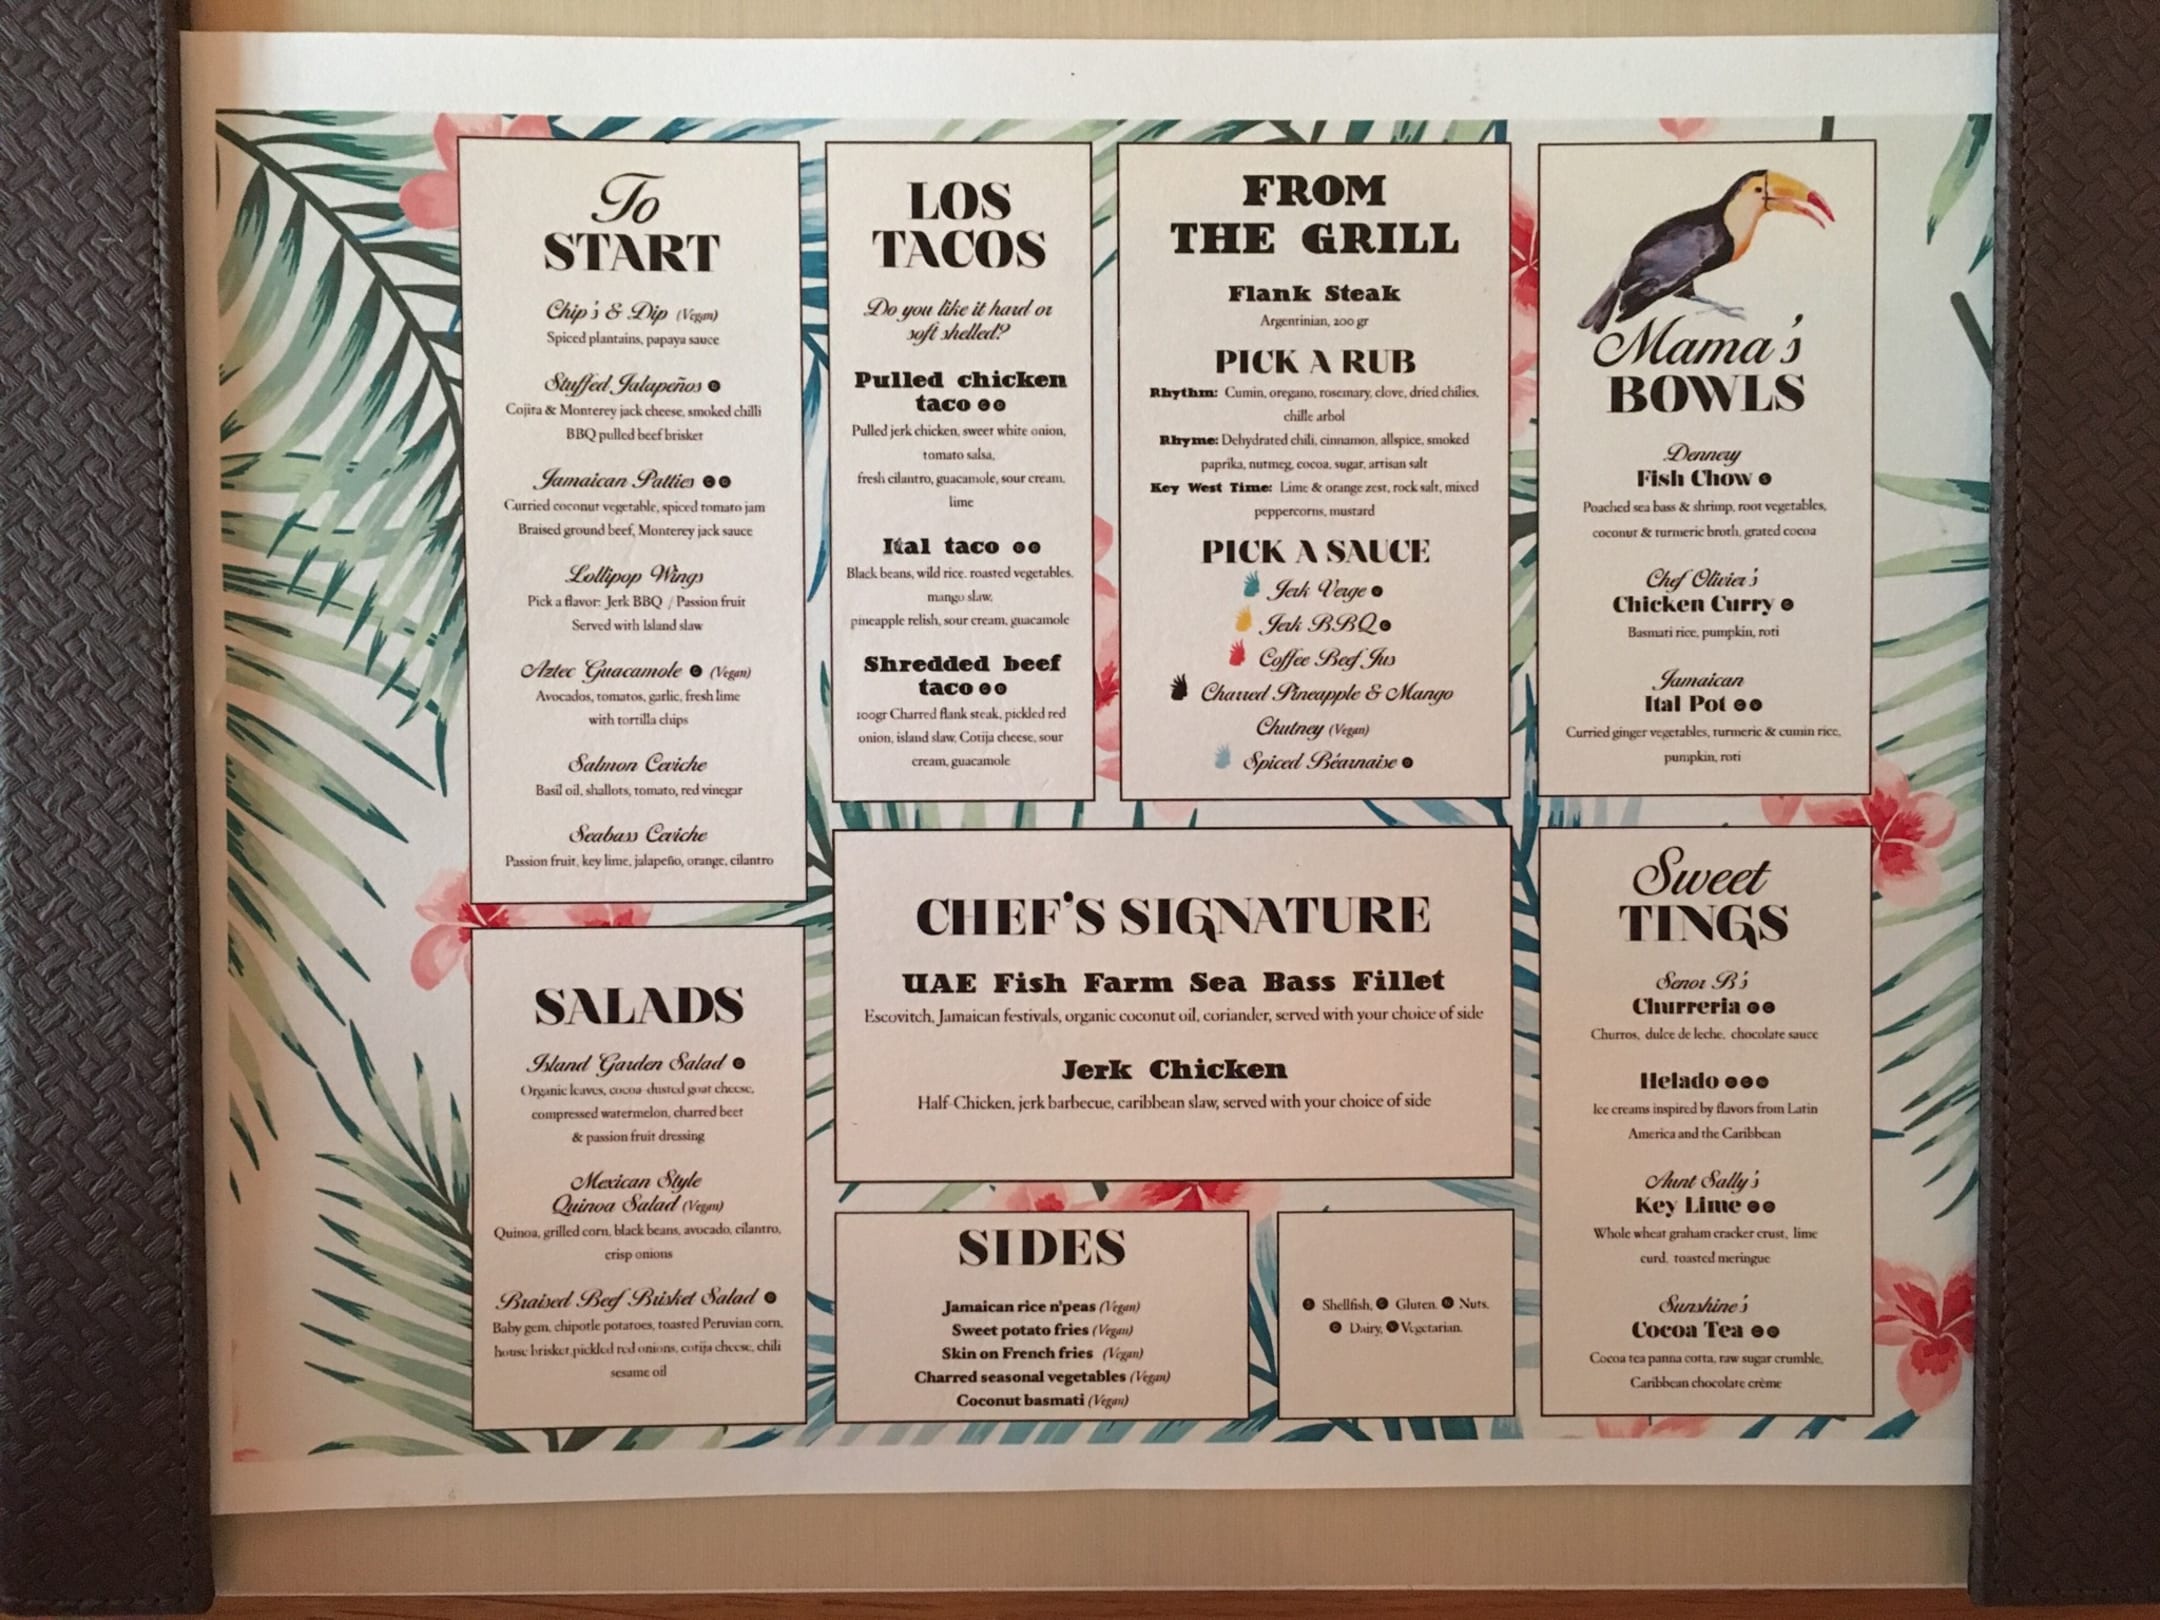 To
START
Chip's & Dip (Vegan)
Spiced plantains, papaya sauce
Stuffed Jalapeños
Cojita & Monterey jack cheese, smoked chilli
BBQ pulled beef brisket
Jamaican Patties
Curried coconut vegetable, spiced tomato jam
Braised ground beef, Monterey jack sauce
Lollipop Wings
Pick a flavor: Jerk BBQ / Passion fruit
Served with Island slaw
Aztec Guacamole (Vegan)
Avocados, tomatos, garlic, fresh lime
with tortilla chips
Salmon Ceviche
Basil oil, shallots, tomato, red vinegar
Seabass Ceviche
Passion fruit, key lime, jalapeño, orange, cilantro
SALADS
Island Garden Salad
Organic leaves, cocoa-dusted goat cheese,
compressed watermelon, charred beet
& passion fruit dressing
Mexican Style
Quinoa Salad (Vegan)
Quinoa, grilled corn, black beans, avocado, cilantro,
crisp onions
Braised Beef Brisket Salad
Baby gem, chipotle potatoes, toasted Peruvian corn,
house brisket,pickled red onions, cotija cheese, chili
sesame oil
LOS
TACOS
Do you like it hard or
soft shelled?
Pulled chicken
taco
Pulled jerk chicken, sweet white onion,
tomato salsa,
fresh cilantro, guacamole, sour cream,
lime
Ital taco
Black beans, wild rice. roasted vegetables,
mango slaw,
pineapple relish, sour cream, guacamole
Shredded beef
taco
100gr Charred flank steak, pickled red
onion, island slaw, Cotija cheese, sour
cream, guacamole
FROM
THE GRILL
Flank Steak
Argentinian, 200 gr
PICK A RUB
Rhythm: Cumin, oregano, rosemary, clove, dried chilies,
chille arbol
Rhyme: Dehydrated chili, cinnamon, allspice, smoked
paprika, nutmeg, cocoa, sugar, artisan salt
Key West Time: Lime & orange zest, rock salt, mixed
peppercorns, mustard
PICK A SAUCE
Jerk Verge
Jerk BBQ
Coffee Beef Jus
Charred Pineapple & Mango
Chutney (Vegan)
Spiced Béarnaise
CHEF'S SIGNATURE
UAE Fish Farm Sea Bass Fillet
Escovitch, Jamaican festivals, organic coconut oil, coriander, served with your choice of side
Jerk Chicken
Half-Chicken, jerk barbecue, caribbean slaw, served with your choice of side
SIDES
Jamaican rice n'peas (Vegan)
Sweet potato fries (Vegan)
Skin on French fries (Vegan)
Charred seasonal vegetables (Vegan)
Coconut basmati (Vegan)
Shellfish, Gluten, Nuts,
Dairy, Vegetarian.
Mama's
BOWLS
Dennery
Fish Chow
Poached sea bass & shrimp, root vegetables,
coconut & turmeric broth, grated cocoa
Chef Olivier's
Chicken Curry
Basmati rice, pumpkin, roti
Jamaican
Ital Pot
Curried ginger vegetables, turmeric & cumin rice,
pumpkin, roti
Sweet
TINGS
Senor B's
Churreria
Churros, dulce de leche, chocolate sauce
Helado
Ice creams inspired by flavors from Latin
America and the Caribbean
Aunt Sally's
Key Lime
Whole wheat graham cracker crust, lime
curd, toasted meringue
Sunshine's
Cocoa Tea
Cocoa tea panna cotta, raw sugar crumble,
Caribbean chocolate crème